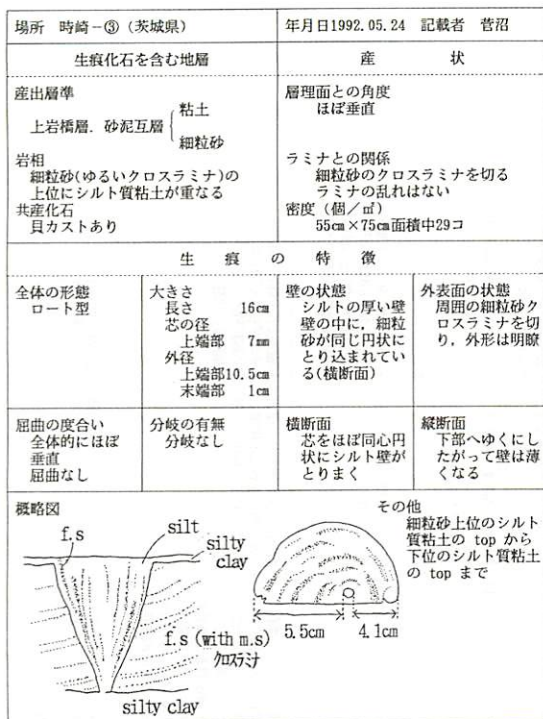 場所 時崎－③（茨城県）
年月日1992.05.24 記載者 菅沼
生痕化石を含む地層
産 状
産出層準
上岩橋層．砂泥互層 { 粘土
細粒砂
岩相
細粒砂(ゆるいクロスラミナ)の
上位にシルト質粘土が重なる
共産化石
貝カストあり
層理面との角度
ほぼ垂直
ラミナとの関係
細粒砂のクロスラミナを切る
ラミナの乱れはない
密度（個／㎡）
55㎝×75㎝面積中29コ
生 痕 の 特 徴
全体の形態
ロート型
大きさ
長さ 16㎝
芯の径
上端部 7㎜
外径
上端部10.5㎝
末端部 1㎝
壁の状態
シルトの厚い壁
壁の中に，細粒
砂が同じ円状に
とり込まれてい
る(横断面)
外表面の状態
周囲の細粒砂ク
ロスラミナを切
り，外形は明瞭
屈曲の度合い
全体的にほぼ
垂直
屈曲なし
分岐の有無
分岐なし
横断面
芯をほぼ同心円
状にシルト壁が
とりまく
縦断面
下部へゆくにし
たがって壁は薄
くなる
概略図
f.s
silt
silty
clay
f.s (with m.s)
クロスラミナ
silty clay
5.5cm
4.1cm
その他
細粒砂上位のシルト
質粘土の top から
下位のシルト質粘土
の top まで